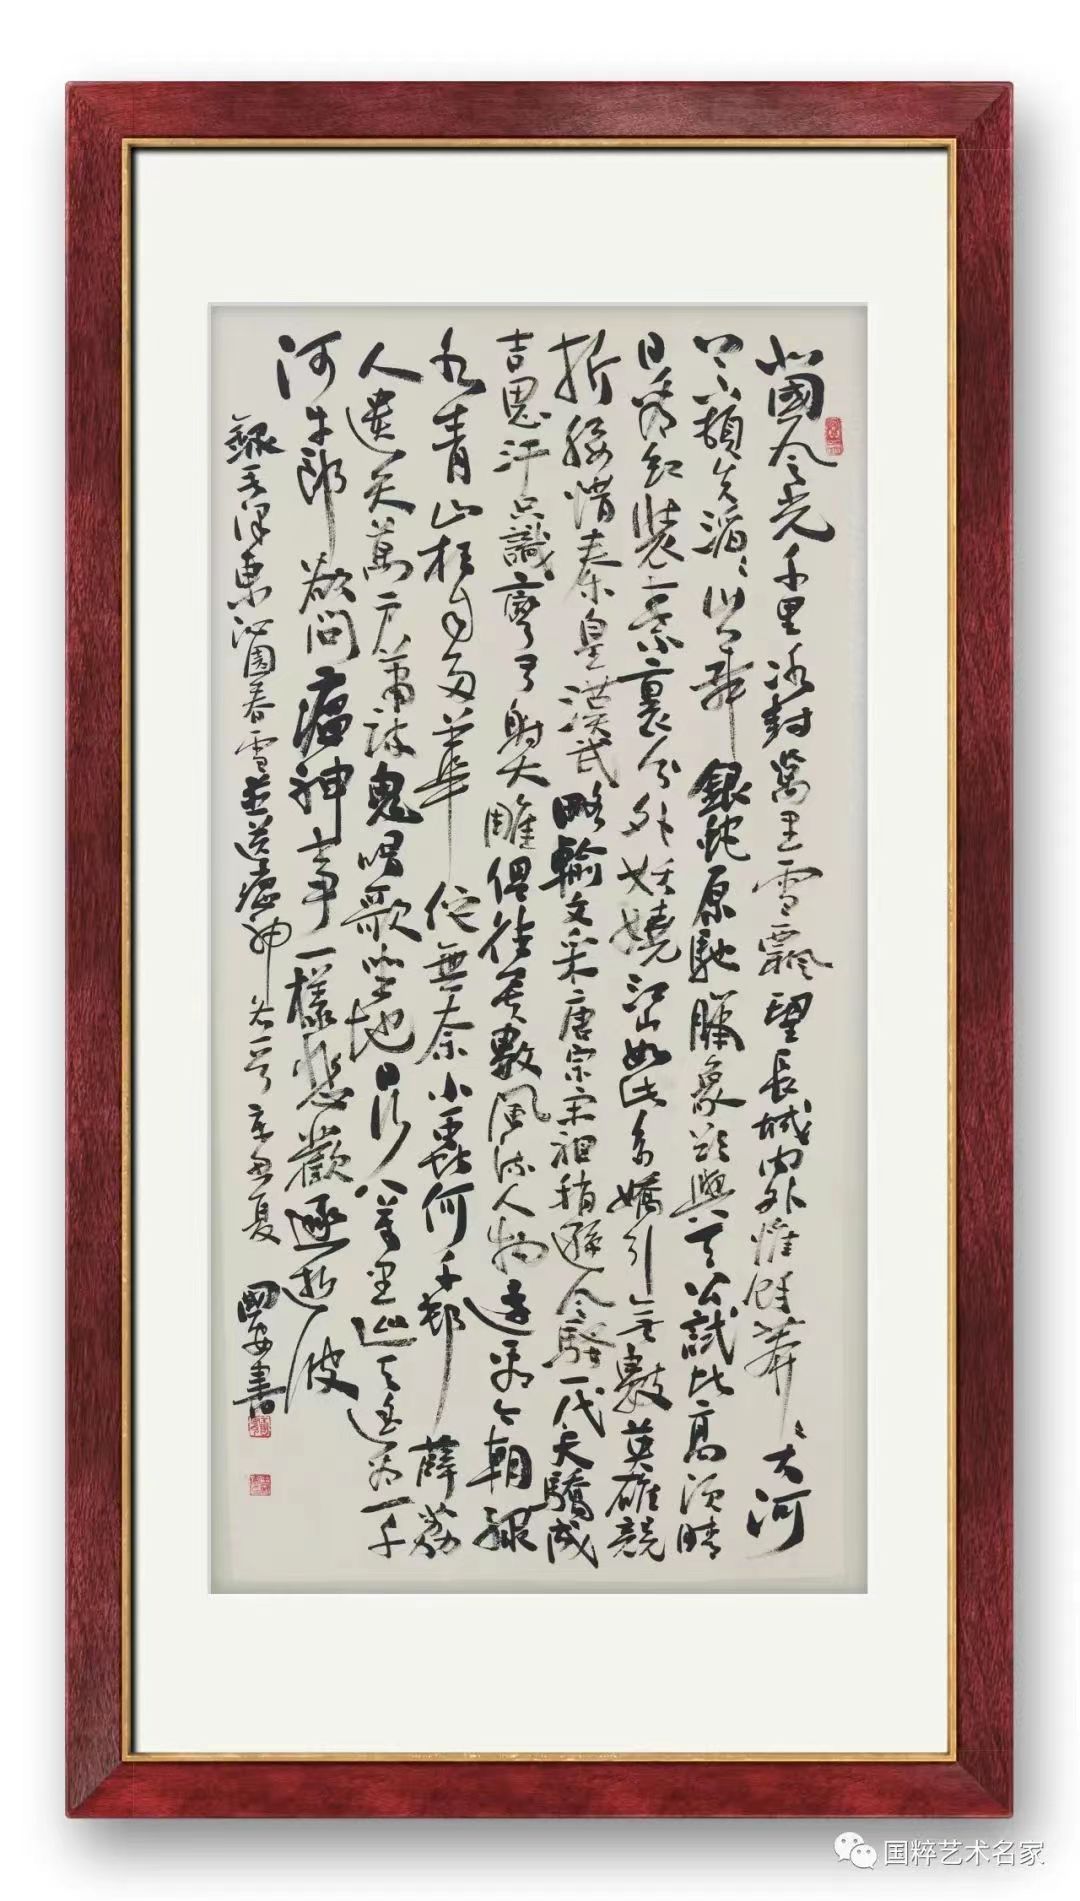 北國風光千里冰封萬里雪飄望長城内外惟餘莽莽大河
上下頓失滔滔山舞銀蛇原馳臘象欲與天公試比高須晴
日看紅裝素裹分外妖嬈江山如此多嬌引無數英雄競
折腰惜秦皇漢武略輸文采唐宗宋祖稍遜風騷一代天驕成
吉思汗只識彎弓射大雕俱往矣數風流人物還看今朝綠
水青山枉自多華佗無奈小蟲何千邨薜荔
人遺矢萬戶蕭疏鬼唱歌坐地日行八萬里巡天遙看一千
河牛郎欲問瘟神事一樣悲歡逐逝波
錄毛澤東沁園春雪並送瘟神各一首辛丑夏國安書
国粹艺术名家